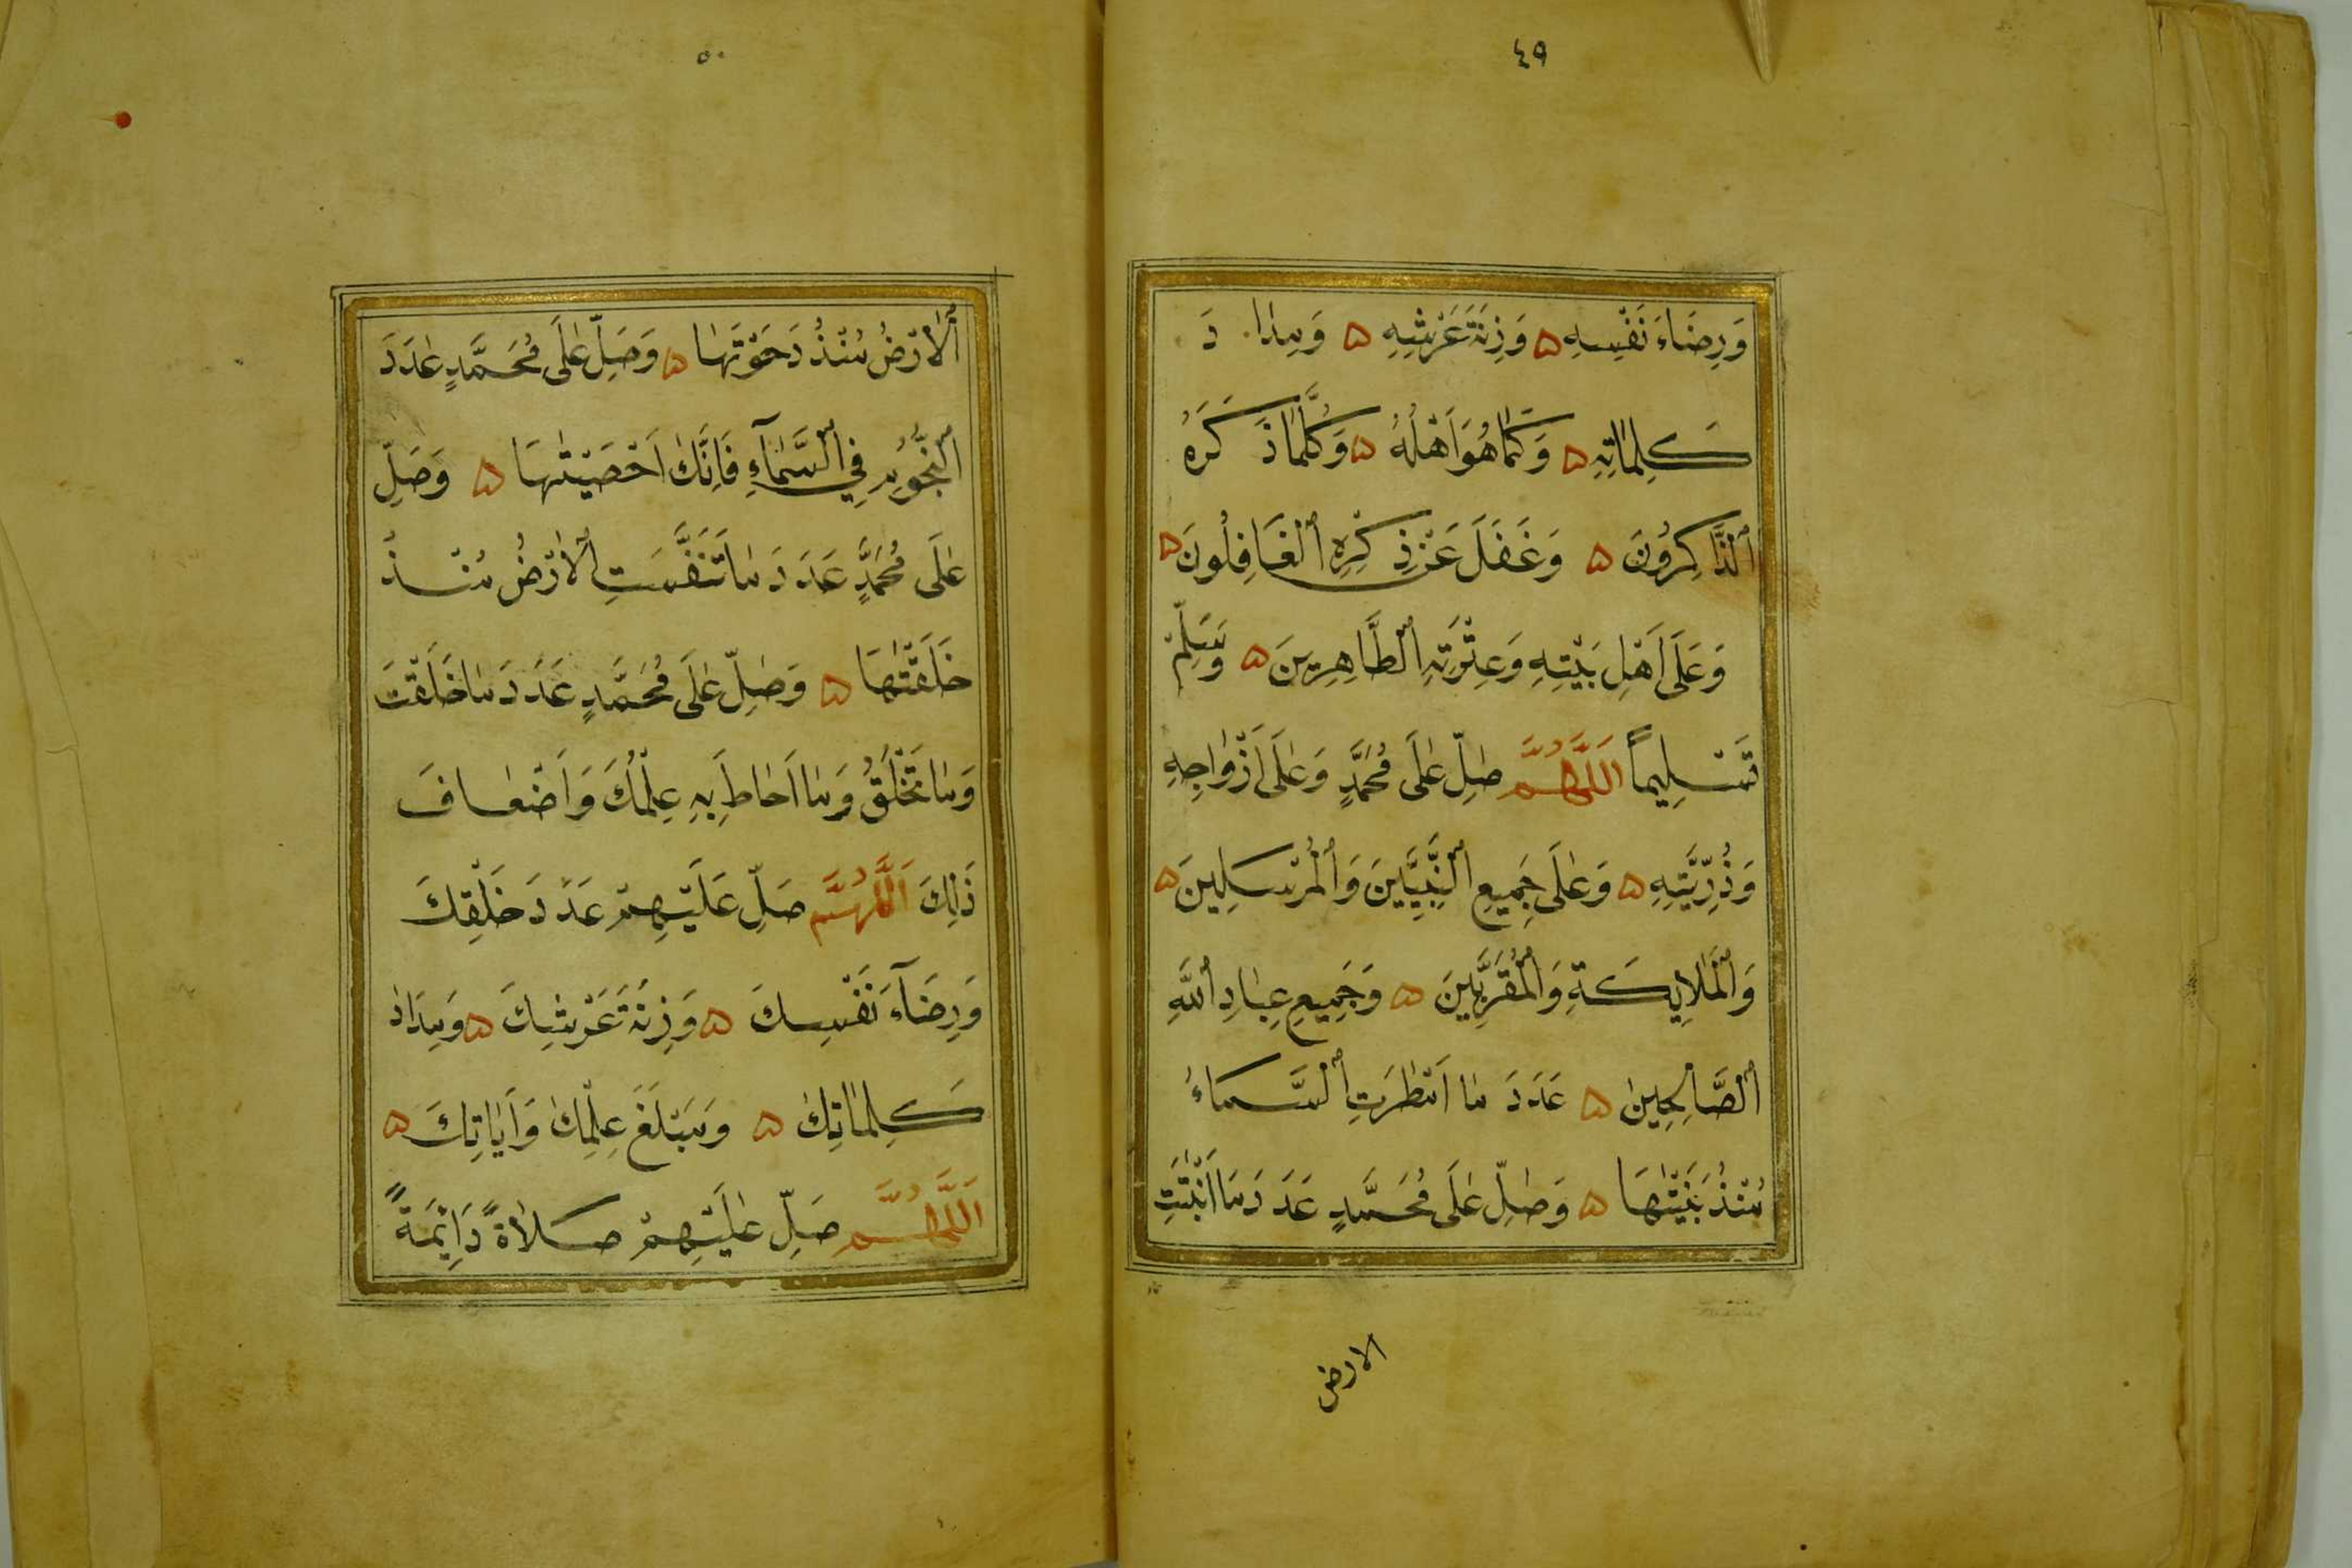 ٤٩
وَرِضَاءَ نَفْسِهِ ۵ وَزِنَةَ عَرْشِهِ ۵ وَمِدَا دَ
كَلِمَاتِهِ ۵ وَكَمَا هُوَ اَهْلُهُ ۵ وَكُلَّمَا ذَكَرَهُ
اَلذَّاكِرُونَ ۵ وَغَفَلَ عَنْ ذِكْرِهِ الْغَافِلُونَ ۵
وَعَلَى اَهْلِ بَيْتِهِ وَعِتْرَتِهِ الطَّاهِرِينَ ۵ وَسَلِّمْ
تَسْلِيماً اَللَّهُمَّ صَلِّ عَلَى مُحَمَّدٍ وَعَلَى اَزْوَاجِهِ
وَذُرِّيَّتِهِ ۵ وَعَلَى جَمِيعِ النَّبِيِّينَ وَالْمُرْسَلِينَ ۵
وَالْمَلَايِكَةِ وَالْمُقَرَّبِينَ ۵ وَجَمِيعِ عِبَادِ اللَّهِ
الصَّالِحِينَ ۵ عَدَدَ مَا اَمْطَرَتِ السَّمَاءُ
مُنْذُ بَنَيْتَهَا ۵ وَصَلِّ عَلَى مُحَمَّدٍ عَدَدَ مَا اَنْبَتَتِ
الارض
٥٠
اَلْاَرْضُ مُنْذُ دَحَوْتَهَا ۵ وَصَلِّ عَلَى مُحَمَّدٍ عَدَدَ
النُّجُومِ فِي السَّمَآءِ فَاِنَّكَ اَحْصَيْتَهَا ۵ وَصَلِّ
عَلَى مُحَمَّدٍ عَدَدَ مَا تَنَفَّسَتِ الْاَرْضُ مُنْذُ
خَلَقْتَهَا ۵ وَصَلِّ عَلَى مُحَمَّدٍ عَدَدَ مَا خَلَقْتَ
وَمَا تَخْلُقُ وَمَا اَحَاطَ بِهِ عِلْمُكَ وَاَضْعَافَ
ذَلِكَ اَللَّهُمَّ صَلِّ عَلَيْهِمْ عَدَدَ خَلْقِكَ
وَرِضَآءَ نَفْسِكَ ۵ وَزِنَةَ عَرْشِكَ ۵ وَمِدَادَ
كَلِمَاتِكَ ۵ وَمَبْلَغَ عِلْمِكَ وَاَيَاتِكَ ۵
اَللَّهُمَّ صَلِّ عَلَيْهِمْ صَلَاةً دَائِمَةً